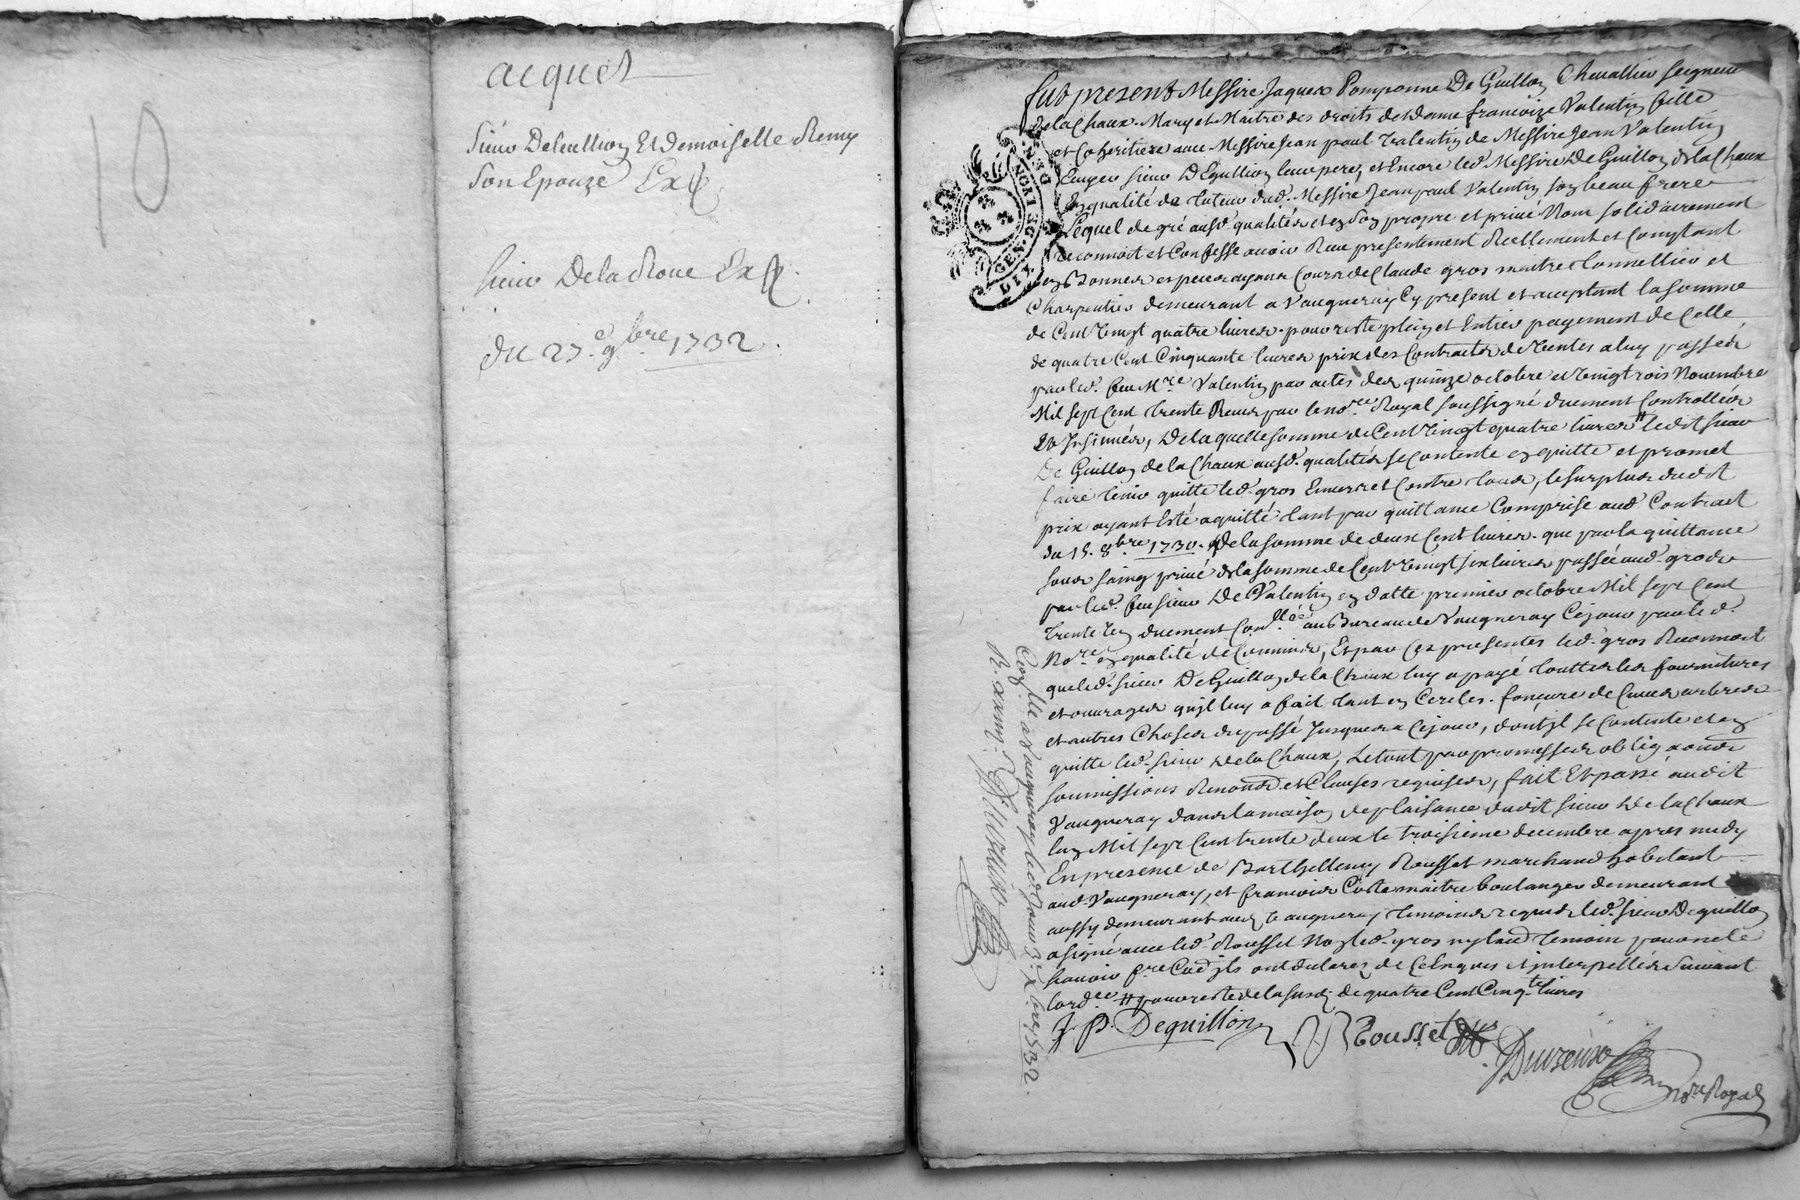 10
acquet
Sieur Deleullion Et demoiselle Remy
Son Epouze Exp
Sieur Delaroue Exp.
du 27.e 9.bre 1732.
DIX DEN.
GEN. DE LYON
fut present Messire Jaques Pomponne De Guillon Chevallier seigneur
dela Chaux. Mary et Maitre des droits de Dame francoize Valentin fille
et Coheritiere avec Messire Jean paul Valentin de Messire Jean Valentin
Ecuyer sieur D Eguillion leur pere, et Encore led. Messire De Guillon dela Chaux
En qualité de tuteur dud. Messire Jean paul Valentin son beau frere
Lequel de gré ausd. qualités et en son propre et privé Nom solidairement
reconnoit et Confesse avoir Receu presentement Reellement et Comptant
en Bonnes especes ayans Cours de Claude gros maitre tonnellier et
Charpentier demeurant a Vaugneray Cy present et aceptant la somme
de Cent Vingt quatre livres. pour reste plein et Entier payement de Celle
de quatre Cent Cinquante livres prix des Contracts de Ventes a luy passés
par led. feu M.re Valentin par actes des quinze octobre et Vingt trois Novembre
Mil sept Cent trente Receus par le no.re Royal soussigné duement Controllés
Et Insinués, De laquelle somme de Cent Vingt quatre livres # ledit sieur
De Guillon de la Chaux ausd. qualités se Contente en quitte et promet
faire tenir quitte led. gros Envers et Contre tous, le surplus dudit
prix ayant Esté aquitté tant par quittance Comprise aud. Contract
du 15. 8.bre 1730. de la somme de deux Cent livres. que par la quittance
sous saing privé de la somme de Cent Vingt six livres passée aud. gros
par led. feu sieur De Valentin en datte premier octobre Mil sept Cent
trente Un duement Con.llée au Bureau de Vaugneray Cejour par led.
No.re en qualité de Commis, Et par Ces presentes led. gros Reconnoit
que led. sieur De Guillon de la Chaux luy a payé touttes les fournitures
et ouvrages qu'il luy a fait tant en Cercles. fonçure de Cuves arbres
et autres Choses du passé Jusques a Cejour, dont il se Contente et en
quitte led. sieur de la Chaux, Le tout par promesses oblig.
soumissions Renon.ons et Clauses requises, fait Et passé audit
Vaugneray dans la maison de plaisance dudit sieur De la Chaux
lan Mil sept Cent trente deux le troisieme decembre apres midy
En presence de Barthellemy Rousset marchand habitant
aud. Vaugneray, et francois Coste maitre boulanger demeurant
aussy demeurant aud. Vaugneray temoins requis led. sieur Deguillon
a signé avec led. Rousset Non led. gros ny laud. temoin pour ne le
scavoir
ils ont declarés de Ce Enquis et interpellés Suivant
lord.ce # pour reste de la susd. de quatre Cent Cinq.te livres
J. P. Deguillon
Rousset
No.re Royal
Con.llé a Vaugneray led. Jour 3.e X.bre 1732